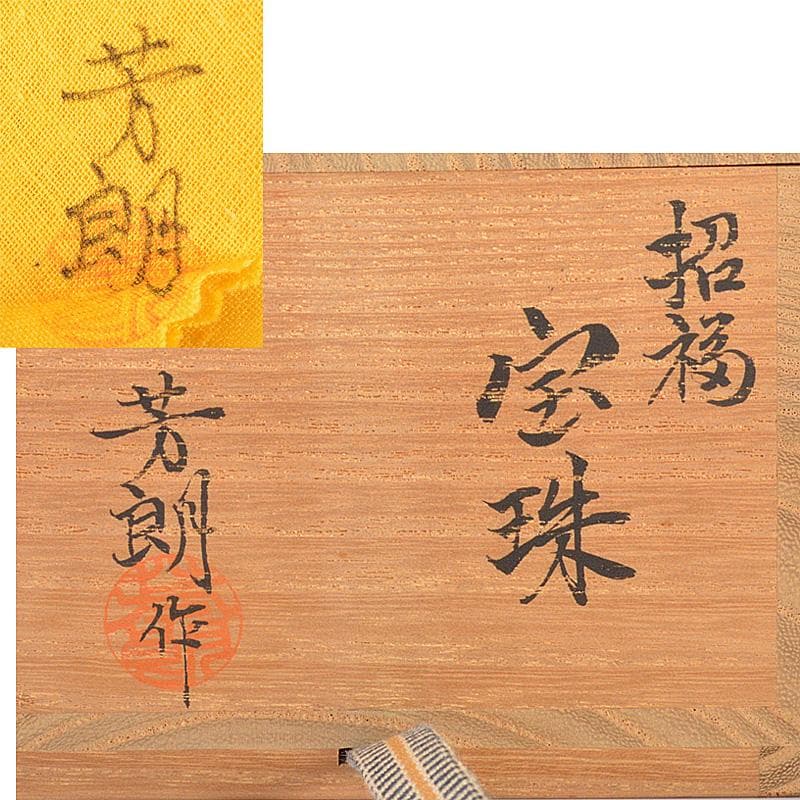 招福
宝珠
芳朗作
芳朗